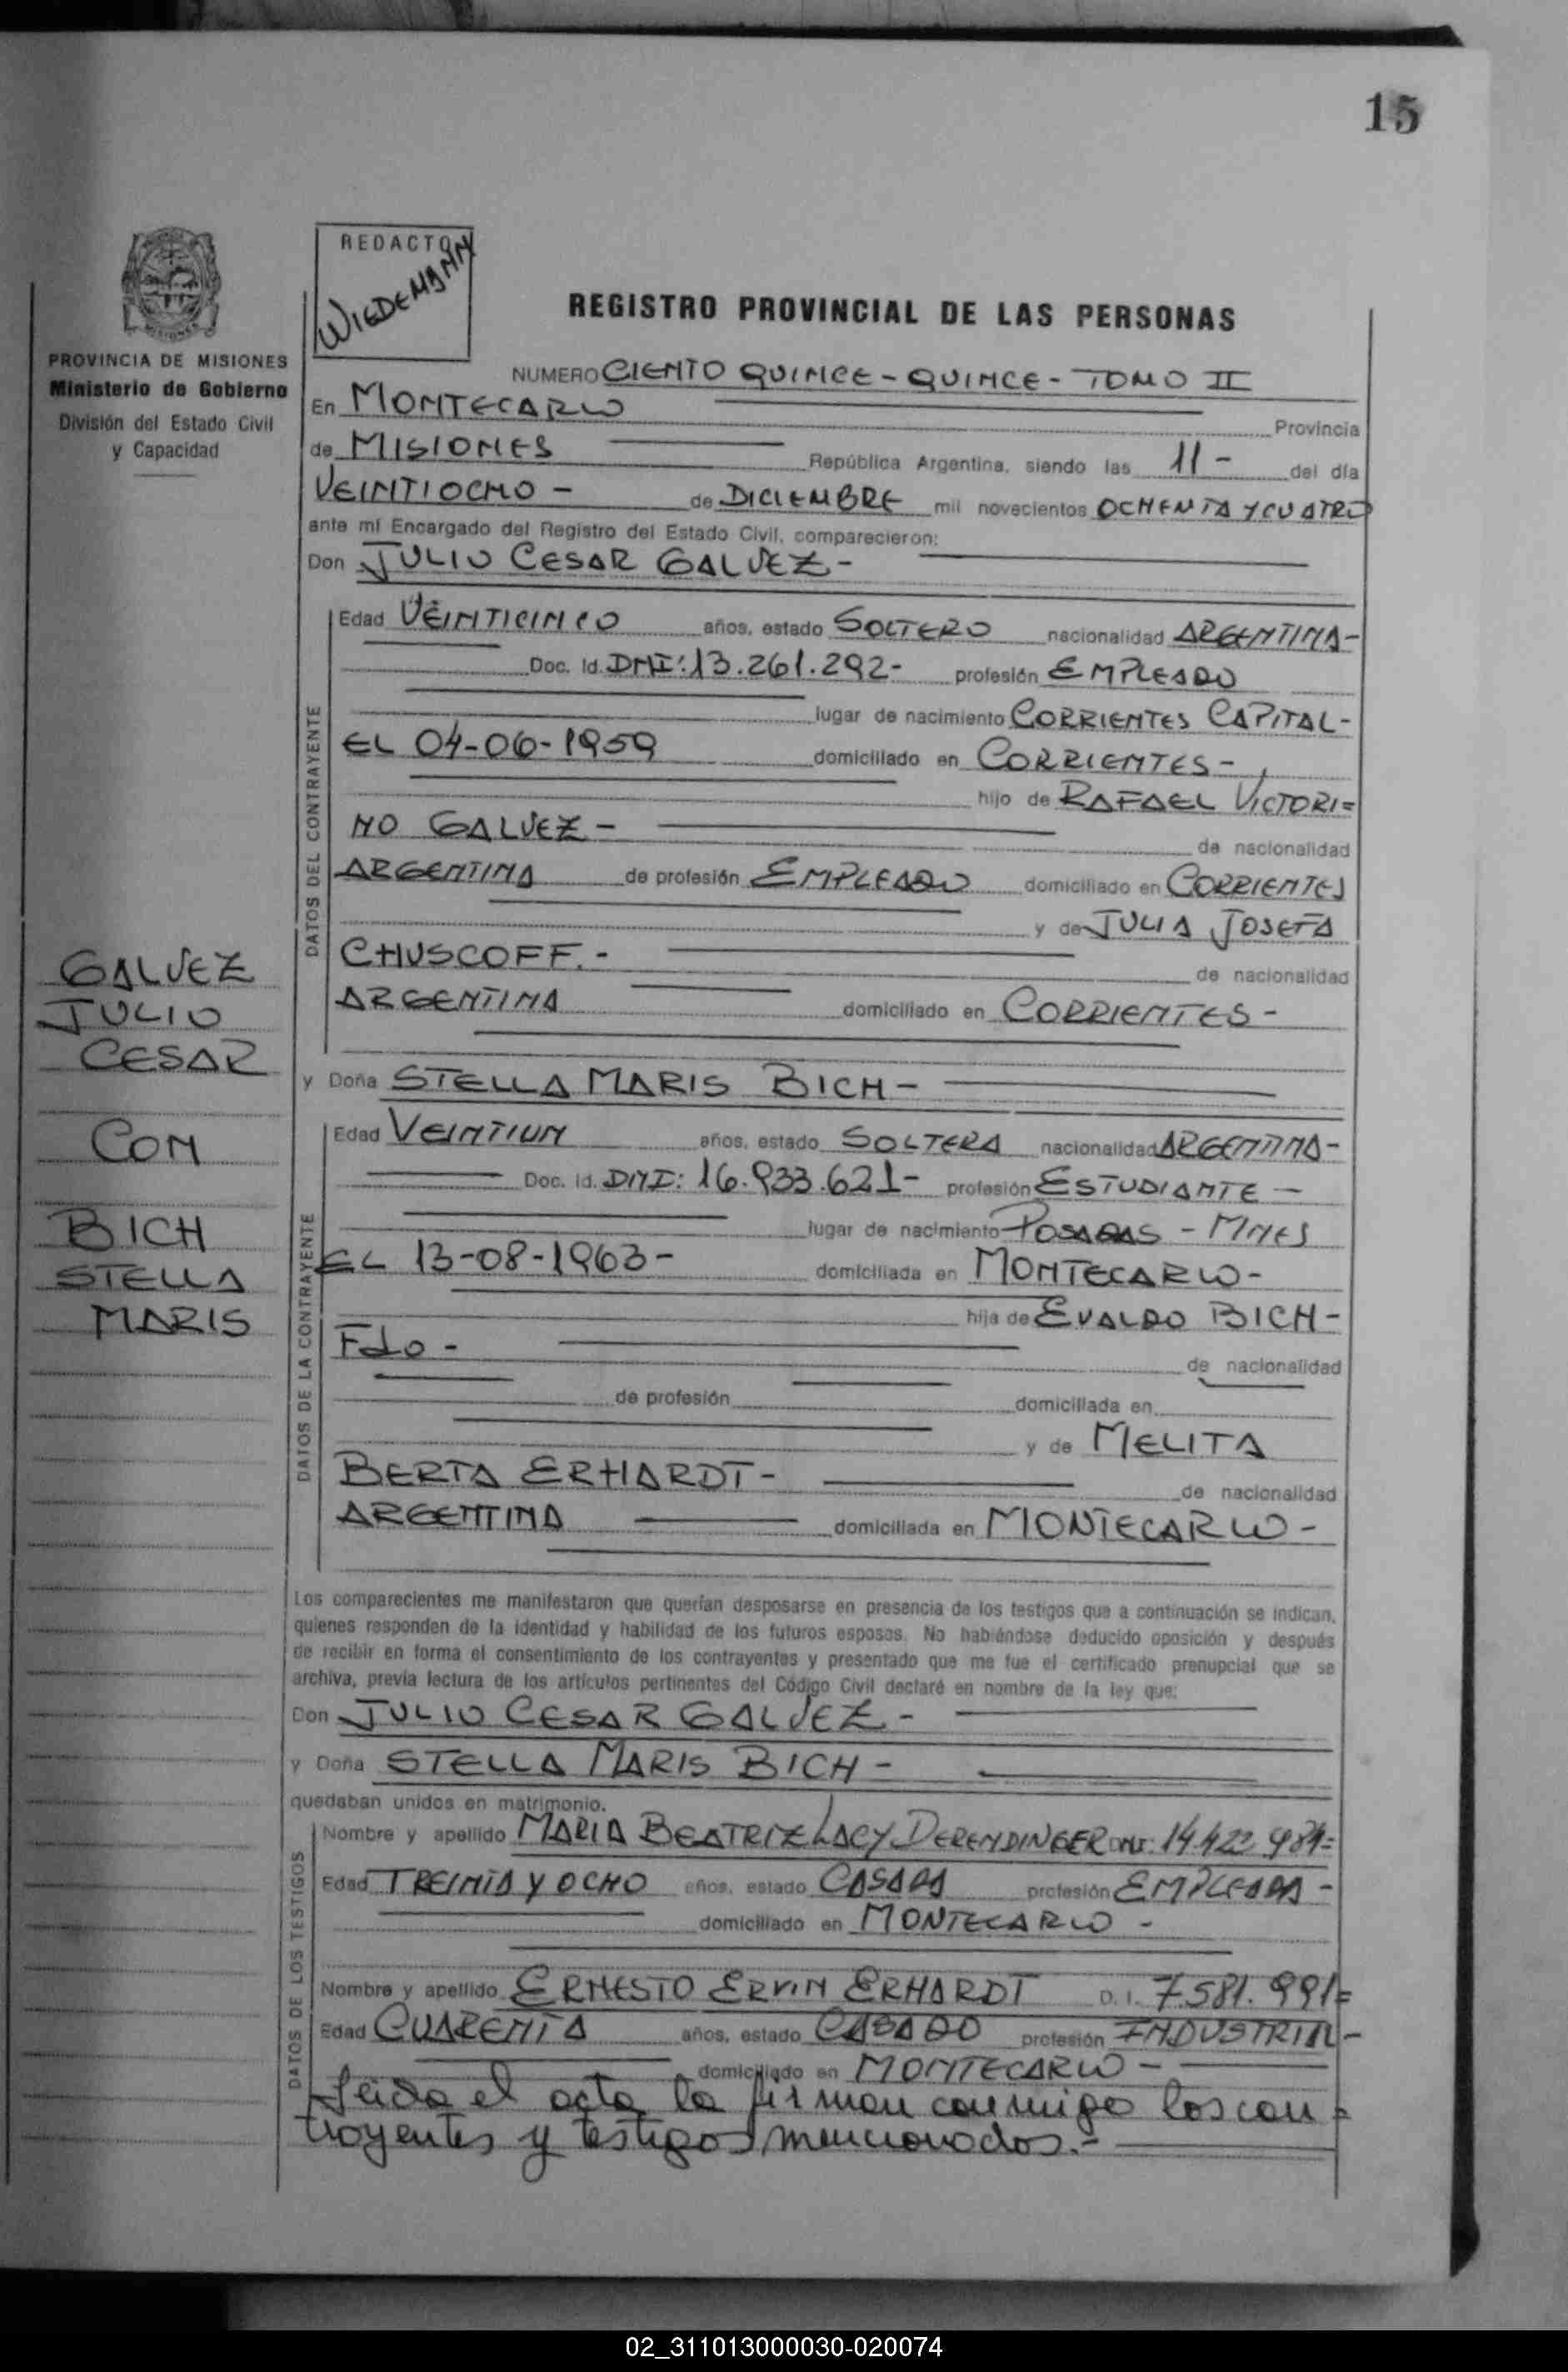 15
REDACTOR
WIEDEMANN
REGISTRO PROVINCIAL DE LAS PERSONAS
PROVINCIA DE MISIONES
Ministerio de Gobierno
División del Estado Civil
y Capacidad
NUMERO CIENTO QUINCE - QUINCE - TOMO II
En MONTECARLO Provincia
de MISIONES República Argentina, siendo las 11 - del día
VEINTIOCHO - de DICIEMBRE mil novecientos OCHENTA Y CUATRO
ante mí Encargado del Registro del Estado Civil, comparecieron:
Don JULIO CESAR GALVEZ -
DATOS DEL CONTRAYENTE
Edad VEINTICINCO años, estado SOLTERO nacionalidad ARGENTINA -
Doc. Id. DNI: 13.261.292 - profesión EMPLEADO
lugar de nacimiento CORRIENTES CAPITAL -
EL 04-06-1959 domiciliado en CORRIENTES -
hijo de RAFAEL VICTORI=
NO GALVEZ - de nacionalidad
ARGENTINA de profesión EMPLEADO domiciliado en CORRIENTES
y de JULIA JOSEFA
CHUSCOFF. - de nacionalidad
ARGENTINA domiciliado en CORRIENTES -
GALVEZ
JULIO
CESAR
CON
BICH
STELLA
MARIS
y Doña STELLA MARIS BICH -
DATOS DE LA CONTRAYENTE
Edad VEINTIUN años, estado SOLTERA nacionalidad ARGENTINA -
Doc. Id. DNI: 16.933.621 - profesión ESTUDIANTE -
lugar de nacimiento POSADAS - MNES
EL 13-08-1963 - domiciliada en MONTECARLO -
hija de EVALDO BICH -
Fdo - de nacionalidad
de profesión domiciliada en
y de MELITA
BERTA ERHARDT - de nacionalidad
ARGENTINA domiciliada en MONTECARLO -
Los comparecientes me manifestaron que querían desposarse en presencia de los testigos que a continuación se indican,
quienes responden de la identidad y habilidad de los futuros esposos. No habiéndose deducido oposición y después
de recibir en forma el consentimiento de los contrayentes y presentado que me fue el certificado prenupcial que se
archiva, previa lectura de los artículos pertinentes del Código Civil declaré en nombre de la ley que:
Don JULIO CESAR GALVEZ -
y Doña STELLA MARIS BICH -
quedaban unidos en matrimonio.
DATOS DE LOS TESTIGOS
Nombre y apellido MARIA BEATRIZ LACY DERENDINGER DNI: 14.422.984=
Edad TREINTA Y OCHO años, estado CASADA profesión EMPLEADA -
domiciliado en MONTECARLO -
Nombre y apellido ERNESTO ERVIN ERHARDT D. I. 7.581.991=
Edad CUARENTA años, estado CASADO profesión INDUSTRIAL -
domiciliado en MONTECARLO -
Leida el acta la firman conmigo los con=
trayentes y testigos mencionados. -
02_311013000030-020074